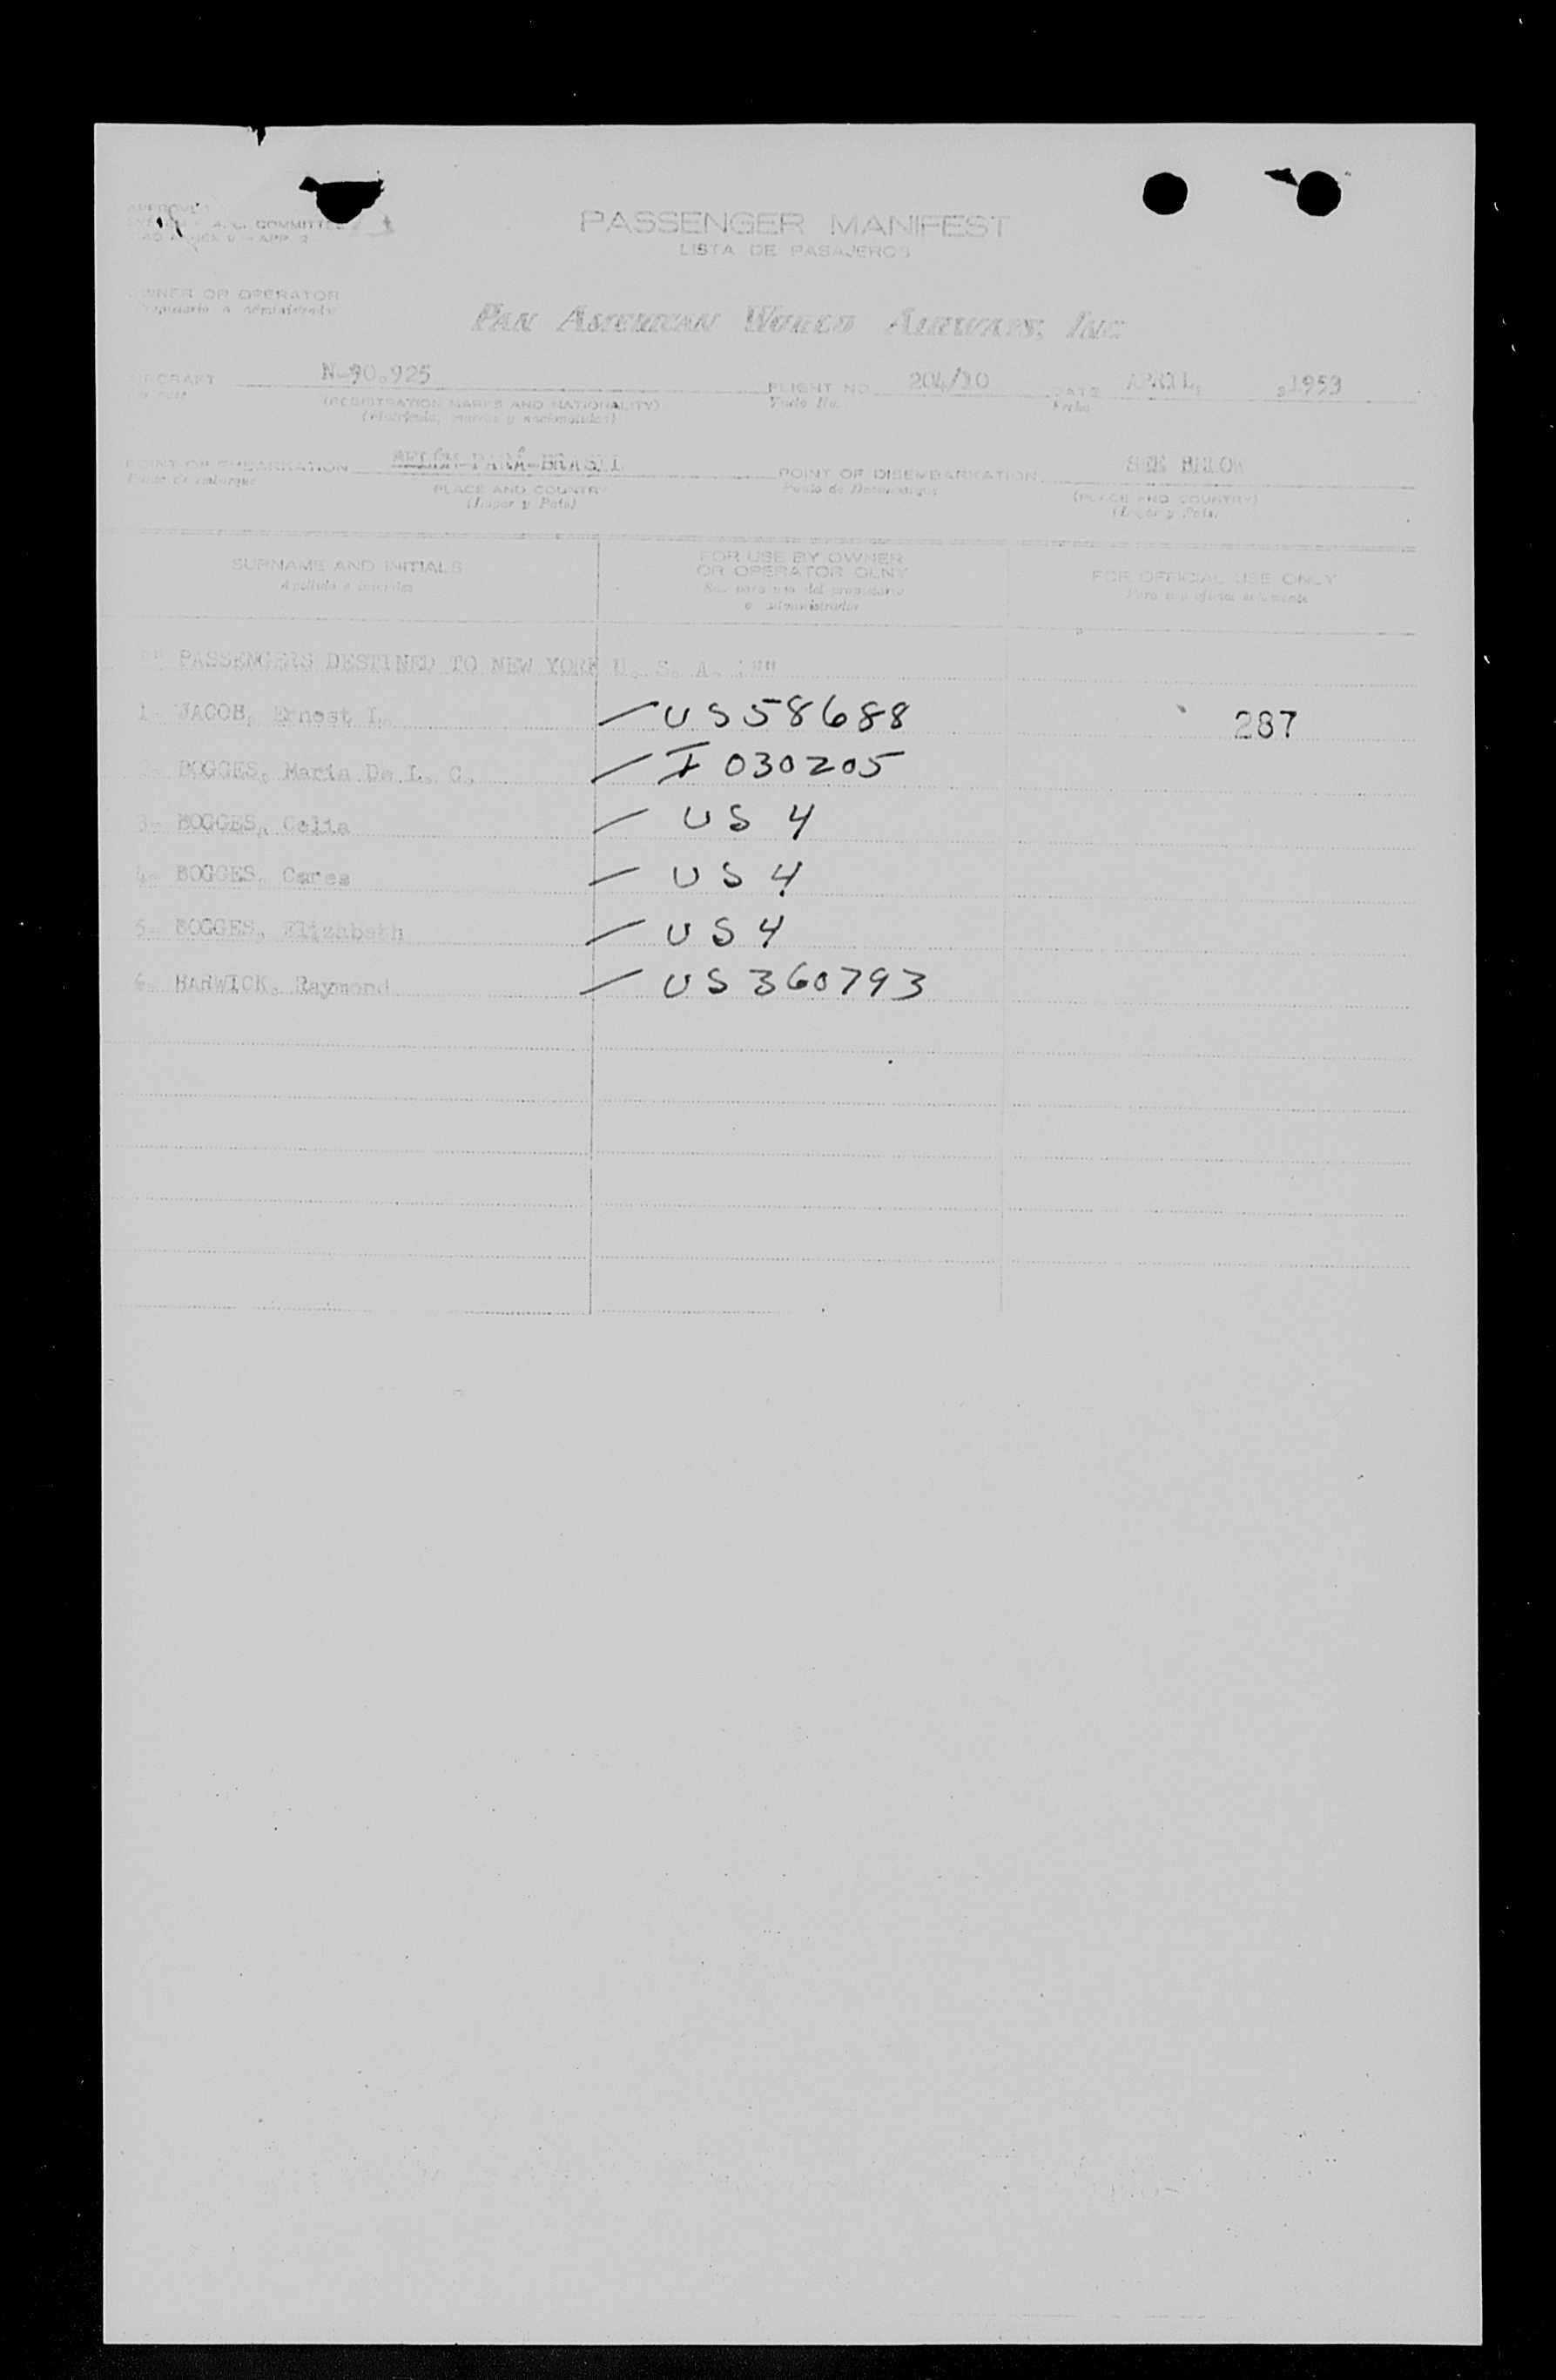 APPROVED
COMMITTEE
PASSENGER MANIFEST
LISTA DE PASAJEROS
OWNER OR OPERATOR
Propietario o administrador
PAN AMERICAN WORLD AIRWAYS, INC.
AIRCRAFT N-90.925 FLIGHT NO. 204/10 DATE APRIL, 1953
(REGISTRATION MARKS AND NATIONALITY) Vuelo No. Fecha
(Matricula, marcas y nacionalidad)
POINT OF EMBARKATION BELÉM-PARÁ-BRASIL POINT OF DISEMBARKATION SEE BELOW
Punto de embarque PLACE AND COUNTRY Punto de Desembarque (PLACE AND COUNTRY)
(Lugar y Pais) (Lugar y Pais)
SURNAME AND INITIALS FOR USE BY OWNER OR OPERATOR OLNY FOR OFFICIAL USE ONLY
Apellido e iniciales
"" PASSENGERS DESTINED TO NEW YORK U. S. A. :""
1- JACOB, Ernest I. — US 58688 287
2- BOGGES, Maria De L. C. — I 030205
3- BOGGES, Celia — US 4
4- BOGGES, — US 4
5- BOGGES, Elizabeth — US 4
6- HARWICK, Raymond — US 360793